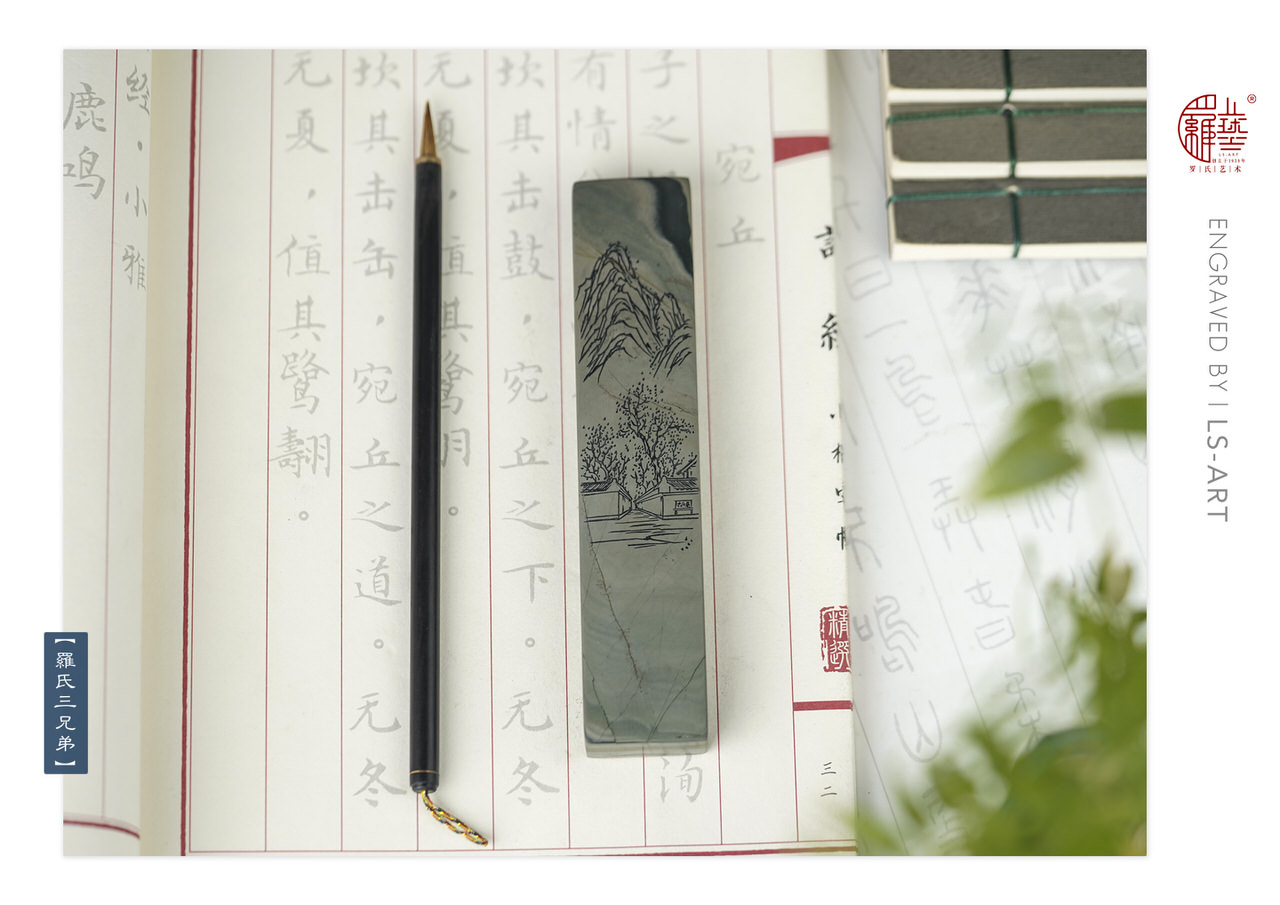 宛丘
子之
洵
有情
坎其击鼓，宛丘之下。无冬
无夏，值其鹭羽。
坎其击缶，宛丘之道。无冬
无夏，值其鹭翿。
精選
三二
经·小雅
鹿鸣
【羅氏三兄弟】
羅
®
罗氏艺术
ENGRAVED BY | LS-ART